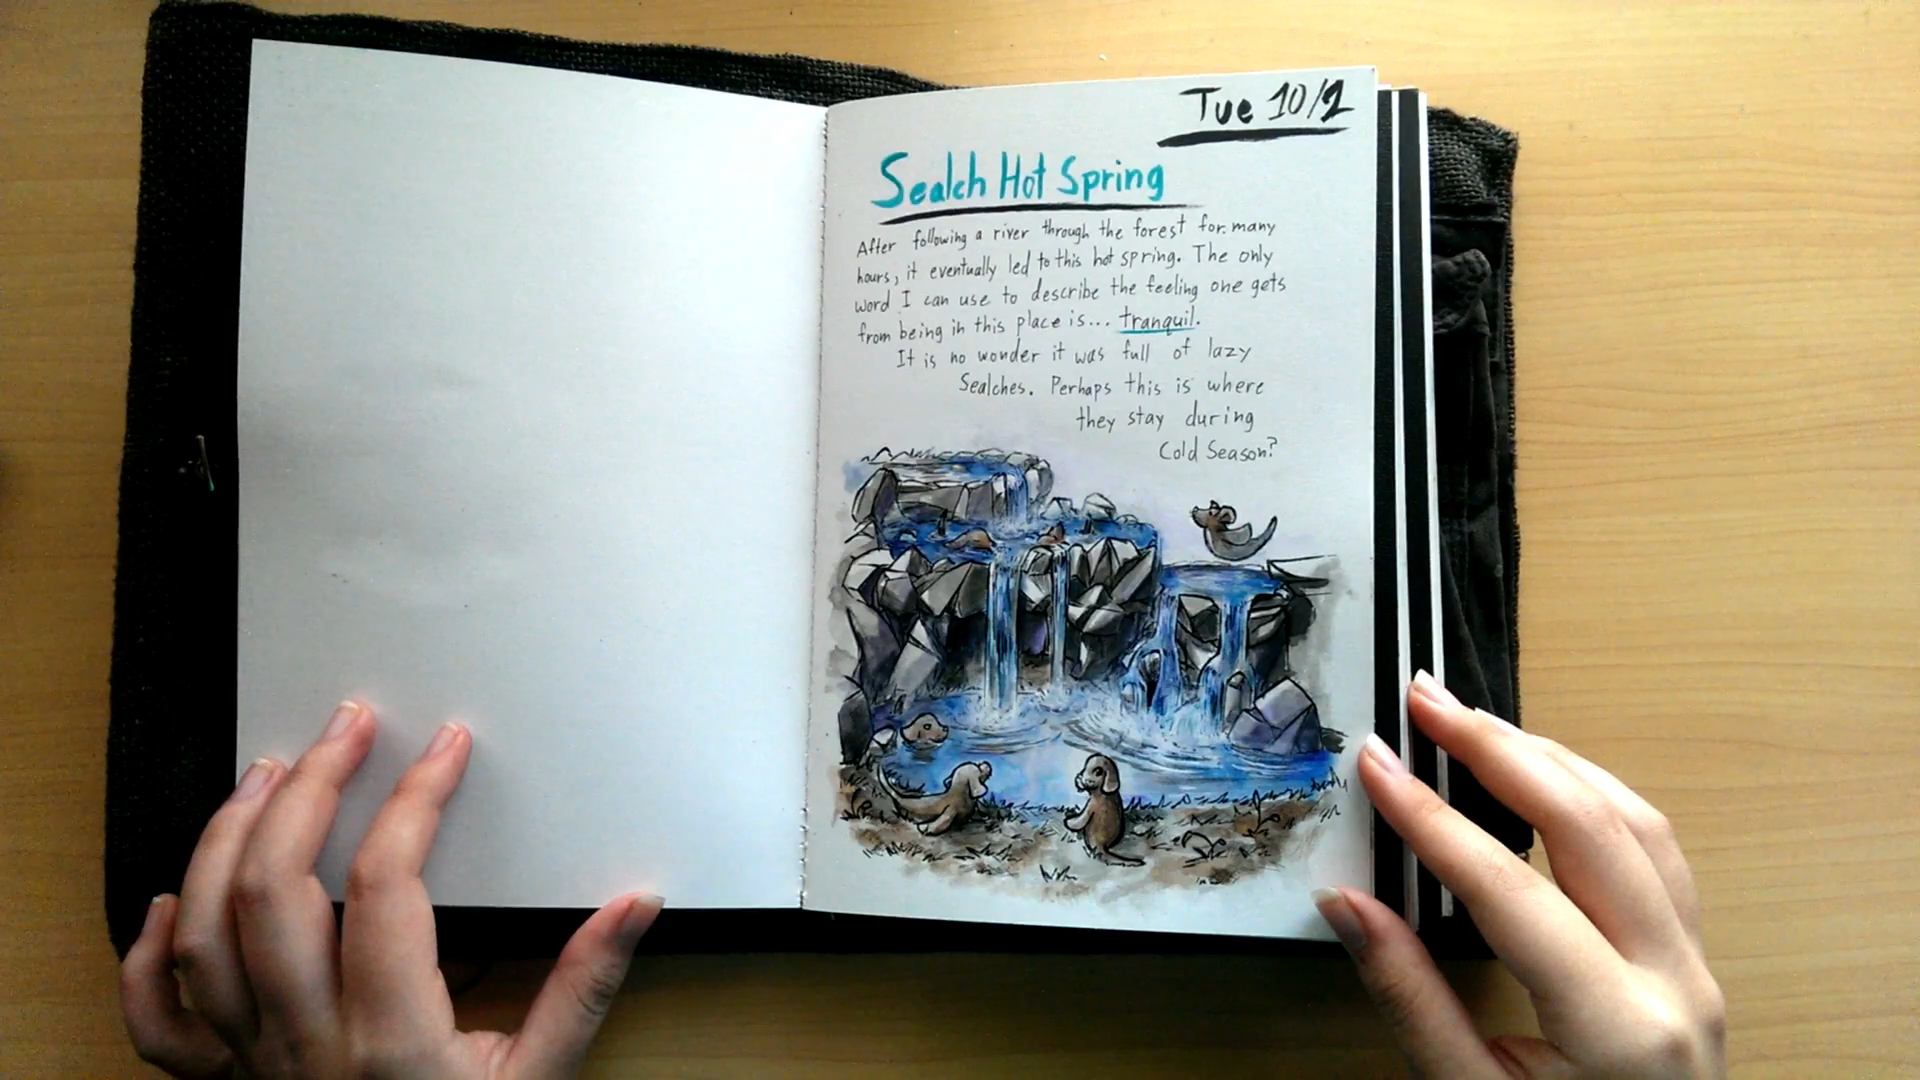 Tue 10/2
Sealch Hot Spring
After following a river through the forest for many
hours, it eventually led to this hot spring. The only
word I can use to describe the feeling one gets
from being in this place is... tranquil.
It is no wonder it was full of lazy
Sealches. Perhaps this is where
they stay during
Cold Season?